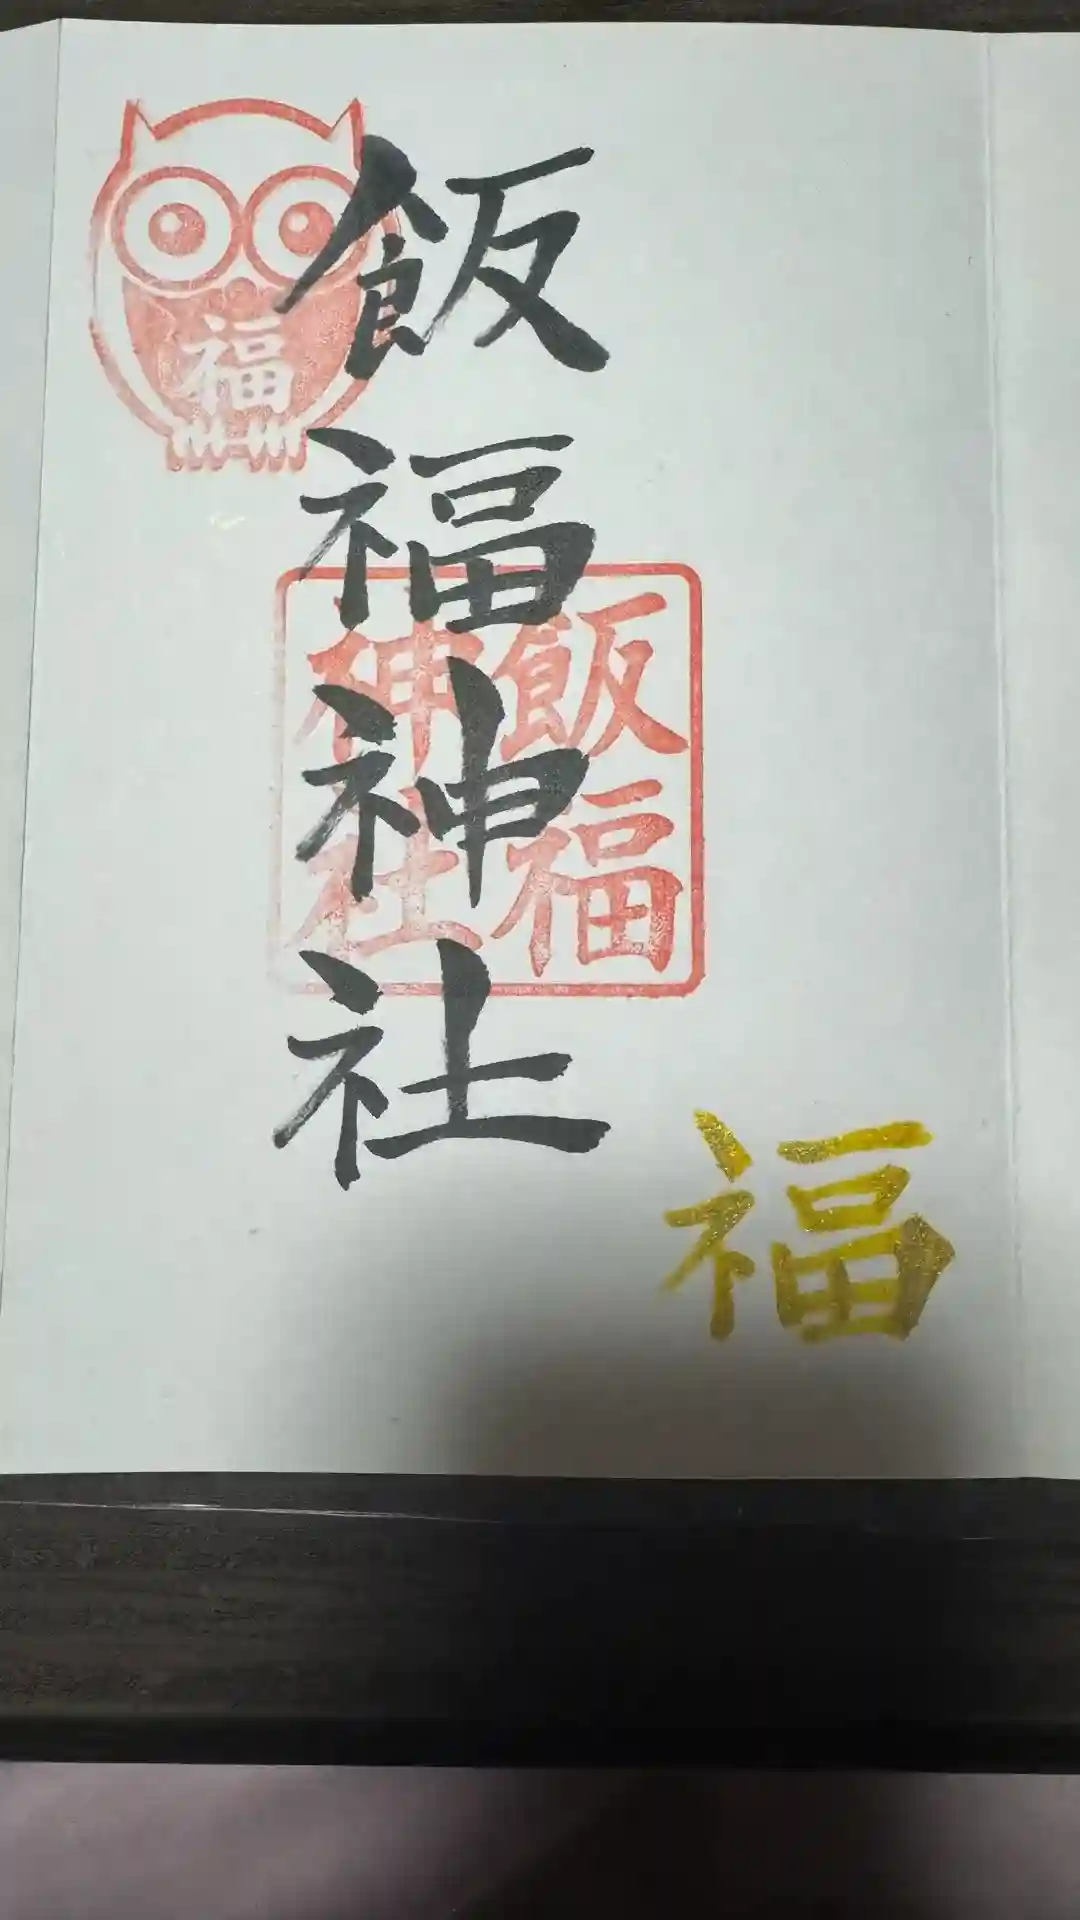 飯福神社
飯福
神社
福
福